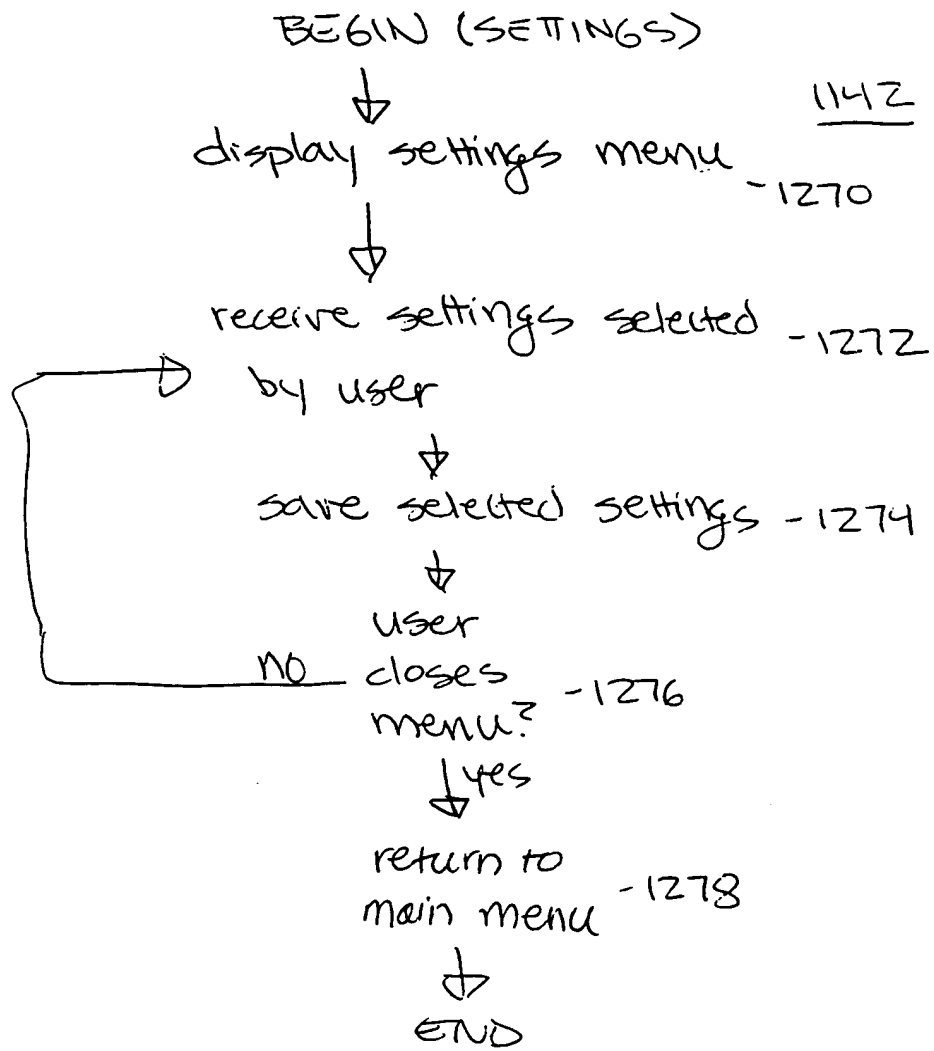 BEGIN (SETTINGS)
1142
display settings menu -1270
receive settings selected -1272
by user
save selected settings -1274
user
no closes
menu? -1276
yes
return to
main menu -1278
END